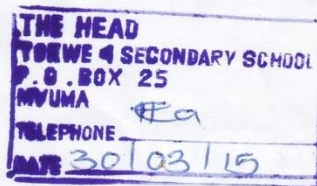 THE HEAD
TOKWE 4 SECONDARY SCHOOL
P.O.BOX 25
MVUMA
TELEPHONE
DATE 30/03/15